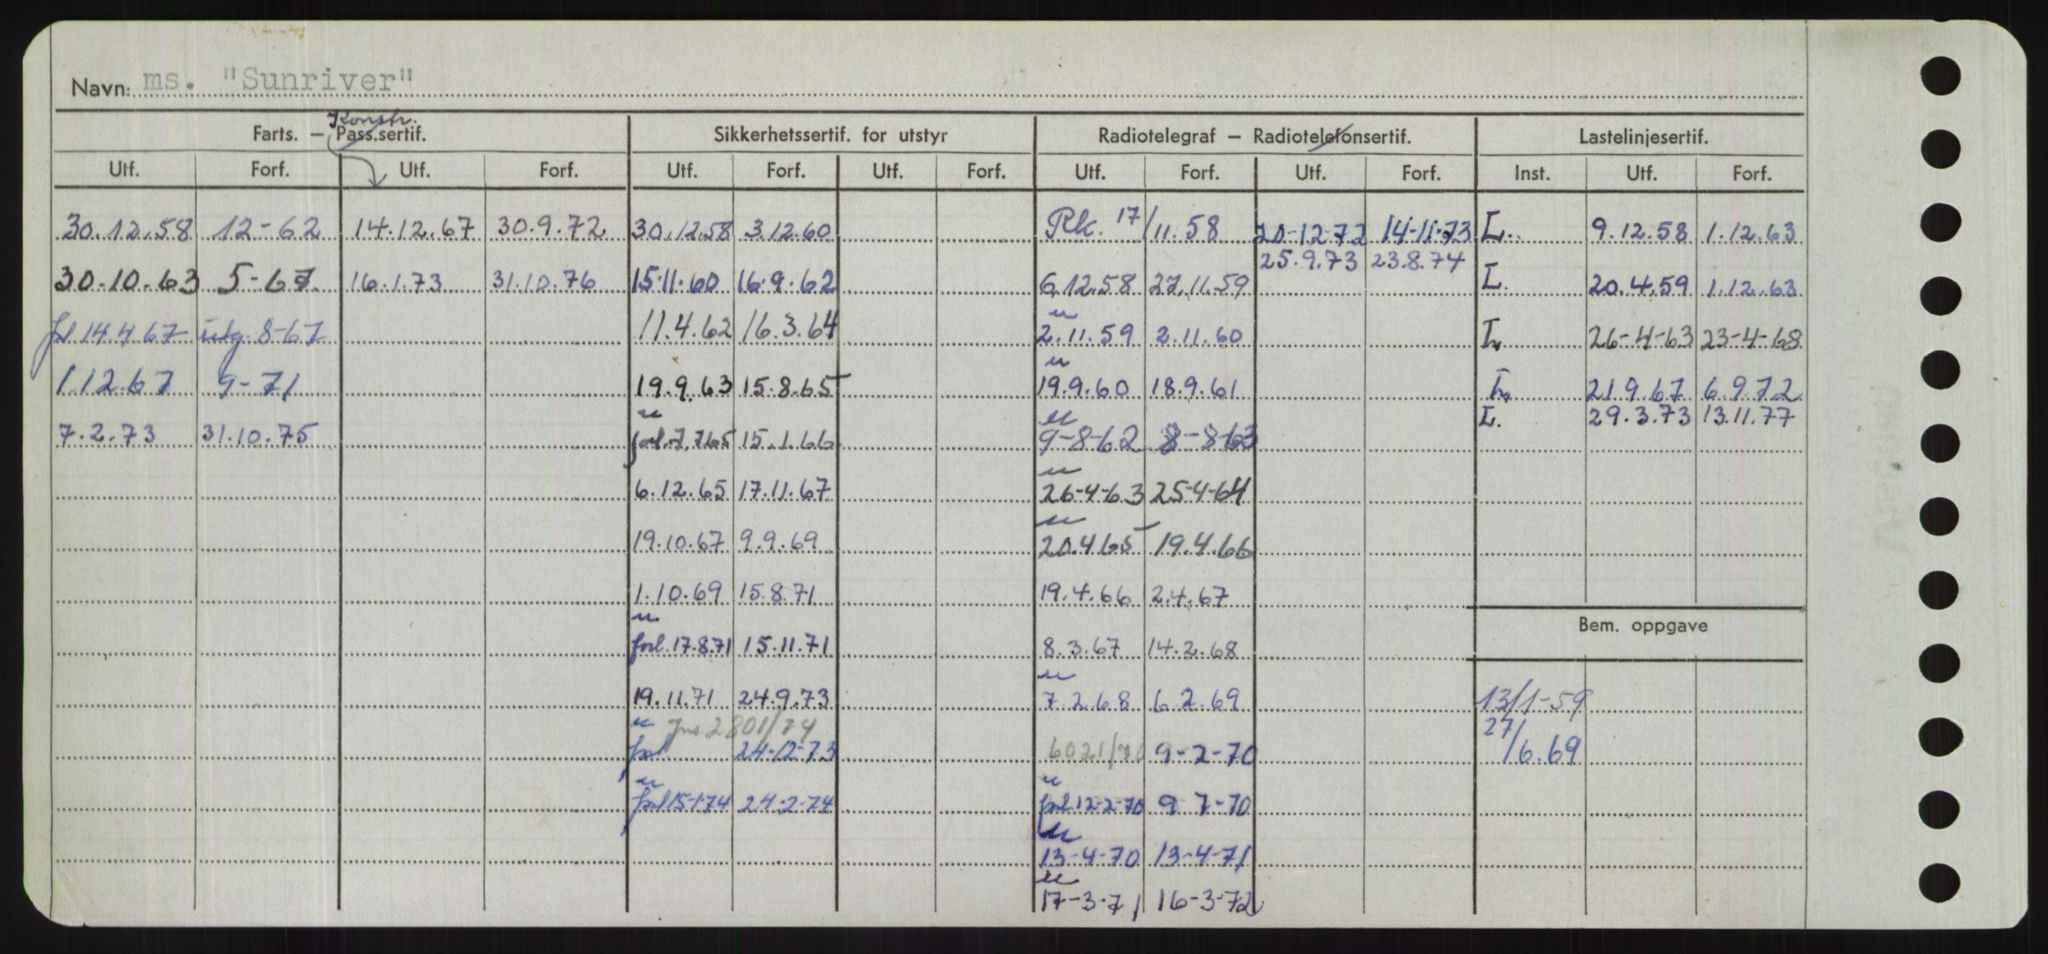 Navn: ms. "Sunriver"
Konstr.
Farts. — Pass.sertif. Sikkerhetssertif. for utstyr Radiotelegraf — Radiotelefonsertif. Lastelinjesertif.
Utf. Forf. Utf. Forf. Utf. Forf. Utf. Forf. Utf. Forf. Utf. Forf. Inst. Utf. Forf.
30.12.58 12-62 14.12.67 30.9.72 30.12.58 3.12.60 Rk. 17/11.58 20-12-72 14-11-73 L. 9.12.58 1.12.63
25.9.73 23.8.74
30.10.63 5-67 16.1.73 31.10.76 15.11.60 16.9.62 6.12.58 27.11.59 L. 20.4.59 1.12.63
fol 14.4.67 utg. 8-67 11.4.62 16.3.64 2.11.59 2.11.60 L. 26-4-63 23-4-68
1.12.67 9-71 19.9.63 15.8.65 19.9.60 18.9.61 L. 21.9.67 6.9.72
L. 29.3.73 13.11.77
7.2.73 31.10.75 forl. 7.7.65 15.1.66 9-8-62 8-8-63
6.12.65 17.11.67 26-4-63 25-4-64
19.10.67 9.9.69 20.4.65 19.4.66
1.10.69 15.8.71 19.4.66 2.4.67
Bem. oppgave
forl. 17.8.71 15.11.71 8.3.67 14.2.68
19.11.71 24.9.73 7.2.68 6.2.69 13/1-59
2801/74
forl 24-12-73 6021/70 9-2-70 27/6.69
forl 15-1-74 24-2-74 forl. 12-2-70 9-7-70
13-4-70 13-4-71
17-3-71 16-3-72